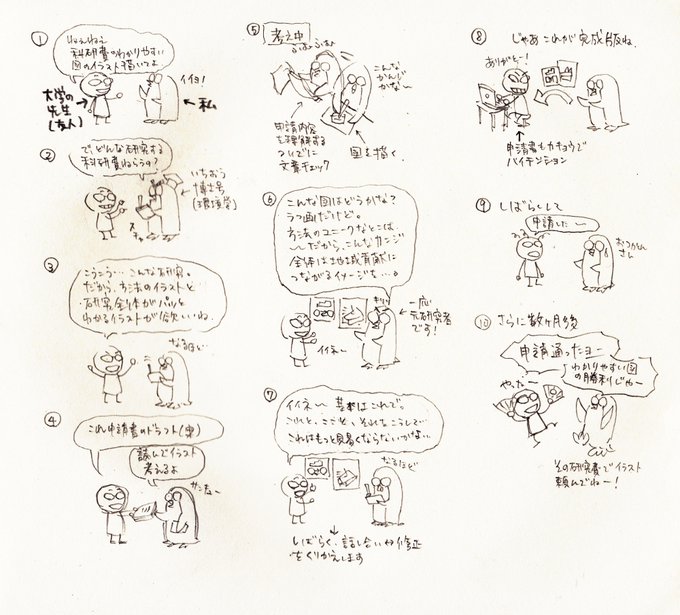 ①
ねぇねぇ
科研費のわかりやすい
図のイラスト描いてよ
イイヨ!
大学の
先生
(友人)
私
②
で、どんな研究する
科研費ねらうの?
いちおう
博士号
(環境学)
③
こうこう…こんな研究。
だから、方法のイラストと
研究全体がパッと
わかるイラストが欲しいね
なるほど…
④
これ申請書のドラフト(案)
読んでイラスト
考えるよ
⑤
考え中
ふむふむ
こんな
かんじ
かな〜
申請内容
を理解する
ついでに
文章チェック
図を描く
⑥
こんな図はどうかな?
ラフ画だけど。
方法のユニークなとこは
〜だから、こんなカンジ
全体は地域貢献に
つながるイメージも…
キリッ
イイネ〜
一応
元研究者
です!
⑦
イイネ〜 基本はこれで。
これと、ここと、それをこうして…
これはもっと見易くならないかな…
なるほど
しばらく、話し合い⇔修正
をくりかえします
⑧
じゃあこれが完成版ね
ありがとー!
申請書もカキョウで
ハイテンション
⑨
しばらくして
申請した〜
おつかれ
さん
⑩
さらに数ヶ月後
申請通ったヨー
わかりやすい図
の勝利じゃー
やったー
その研究費でイラスト
頼んでねー!